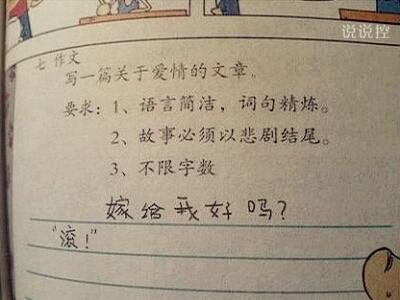 说说控
七 作文
写一篇关于爱情的文章。
要求：1、语言简洁，词句精炼。
2、故事必须以悲剧结尾。
3、不限字数
嫁给我好吗？
“滚！”